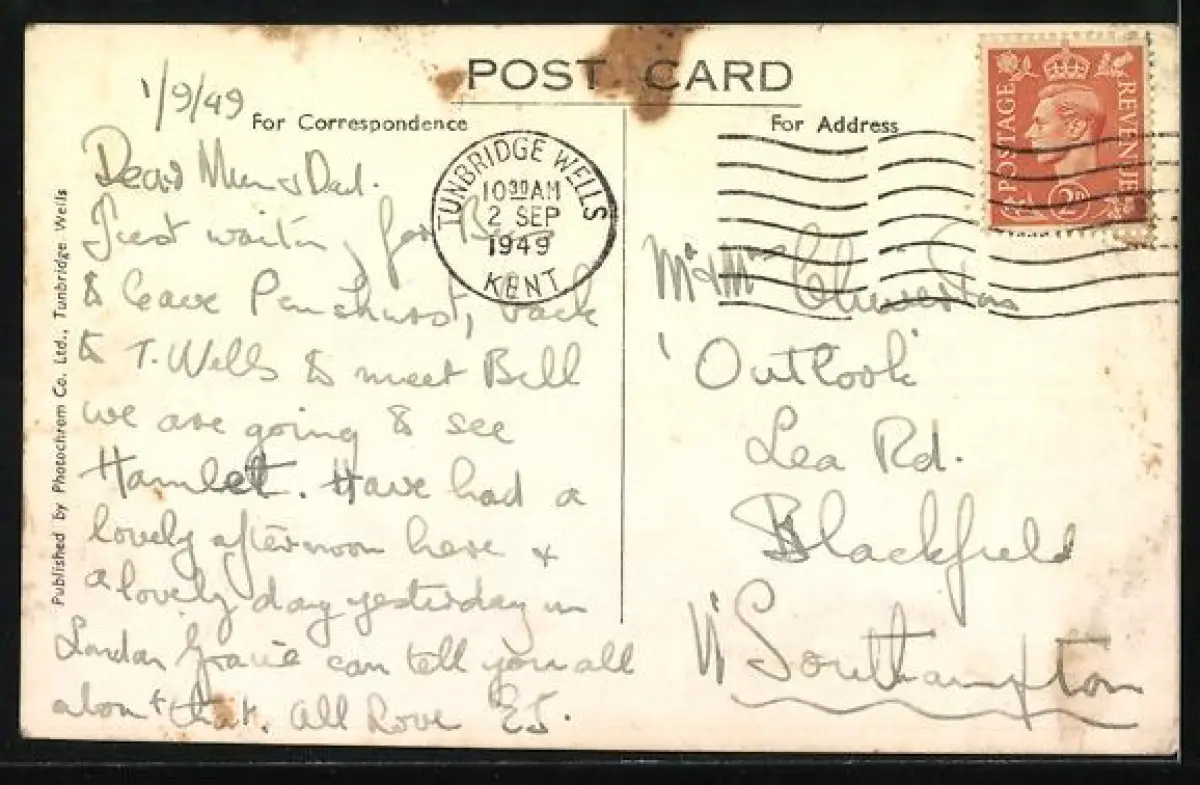 POST CARD
1/9/49
For Correspondence
For Address
POSTAGE REVENUE
2D
TUNBRIDGE WELLS
10 30 AM
2 SEP
1949
KENT
Published by Photochrom Co. Ltd., Tunbridge Wells
Dear Mum & Dad.
Just waiting for
to leave Penshurst, back
to T. Wells to meet Bill
we are going to see
Hamlet. Have had a
lovely afternoon here +
a lovely day yesterday in
London Gracie can tell you all
about that. All Love
Mr & Mrs
'Outlook'
Lea Rd.
Blackfield
Nr Southampton